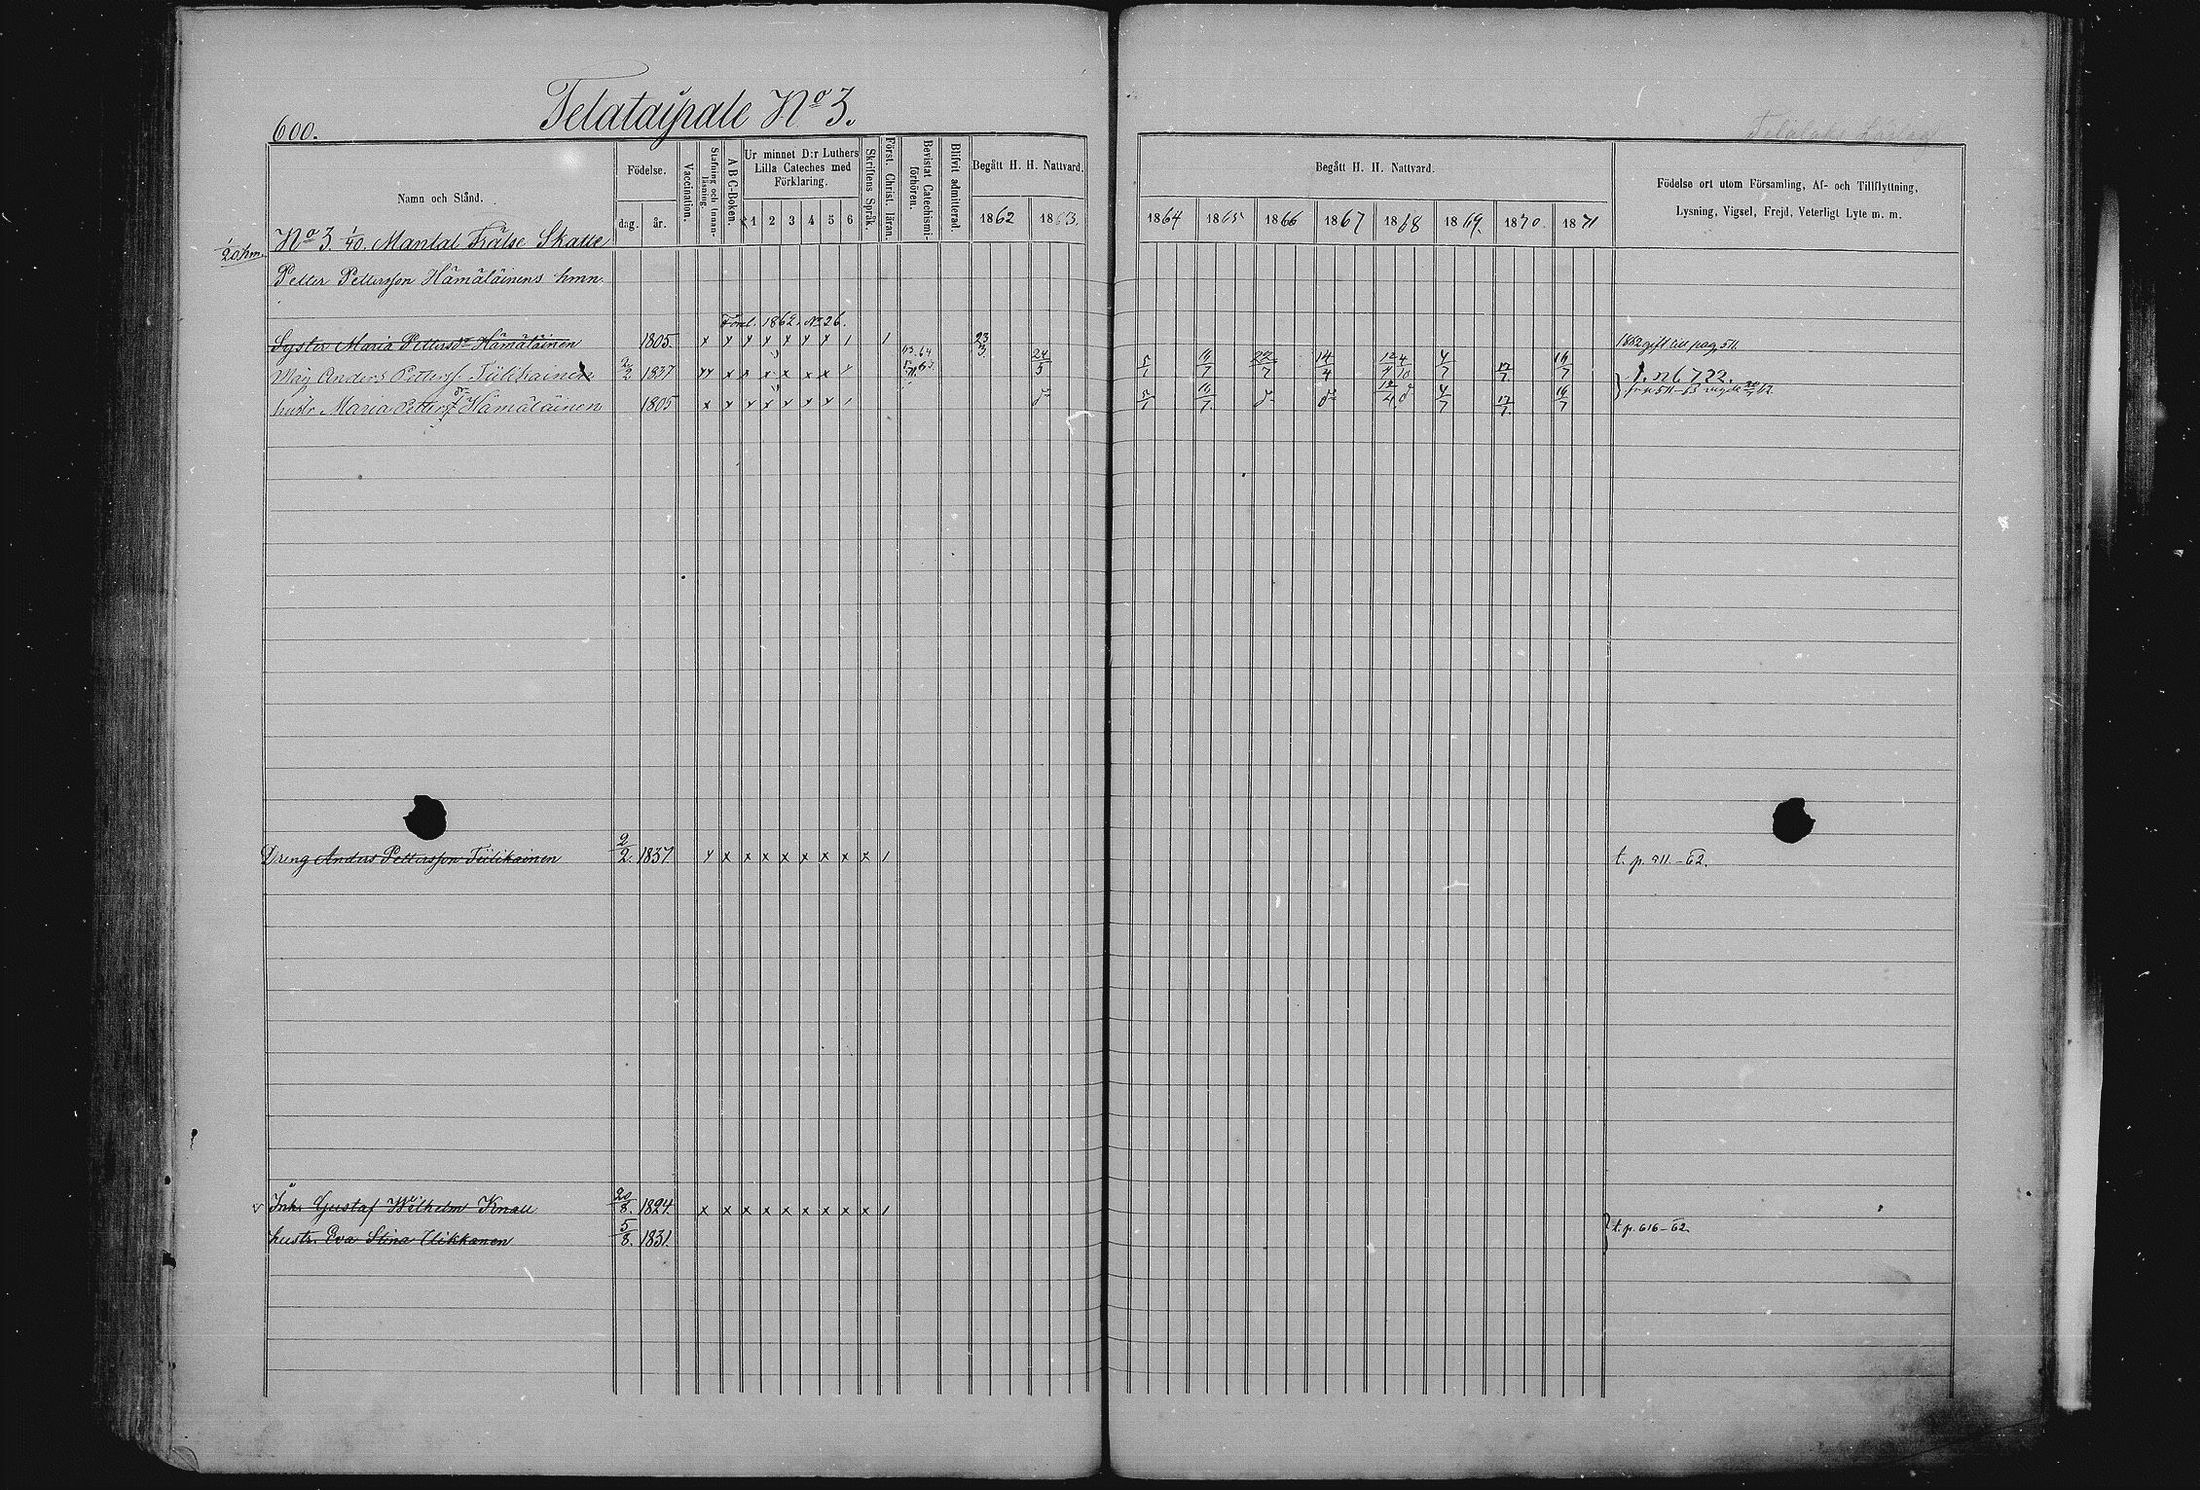 600.
Telataipale No 3.
Namn och Stånd.
Födelse.
dag. år.
Vaccination.
Stafning och Innanläsning.
A B C-Boken.
Ur minnet D:r Luthers Lilla Cateches med Förklaring.
1 2 3 4 5 6
Skriftens Språk.
Först. Christ. läran.
Bevistat Catechismiförhören.
Blifvit admitterad.
Begått H. H. Nattvard.
1862 1863.
Begått H. H. Nattvard.
1864 1865 1866 1867 1868 1869. 1870. 1871
Födelse ort utom Församling, Af- och Tillflyttning,
Lysning, Vigsel, Frejd, Veterligt Lyte m. m.
1/20 hm.
No 3. 1/40. Mantal Frälse Skatte
Petter Pettersson Hämäläinens hmn
Förel. 1862. No 26.
Syster Maria Pettersdr Hämäläinen 1805. x x x x x x x 1 1 23/3. 1862 gift till pag. 511.
Måg Anders Petterss. Tiilikainen 2/2 1837 24/5 5/1 16/7 22/7 14/4 12/4 4/10 4/7 17/7 16/7
hustr. Maria Pettersdr Hämäläinen 1805 5/1 16/7 4/7 17/7 16/7
Dreng Anders Pettersson Tiilikainen 2/2. 1837 x x x x x x x x x 1 t. p. 511.-62.
Inh. Gustaf Wilhelm Knau 20/8. 1824. x x x x x x x x x 1
hustr. Eva Stina Ulikkanen 5/8. 1831. t. p. 616-62.